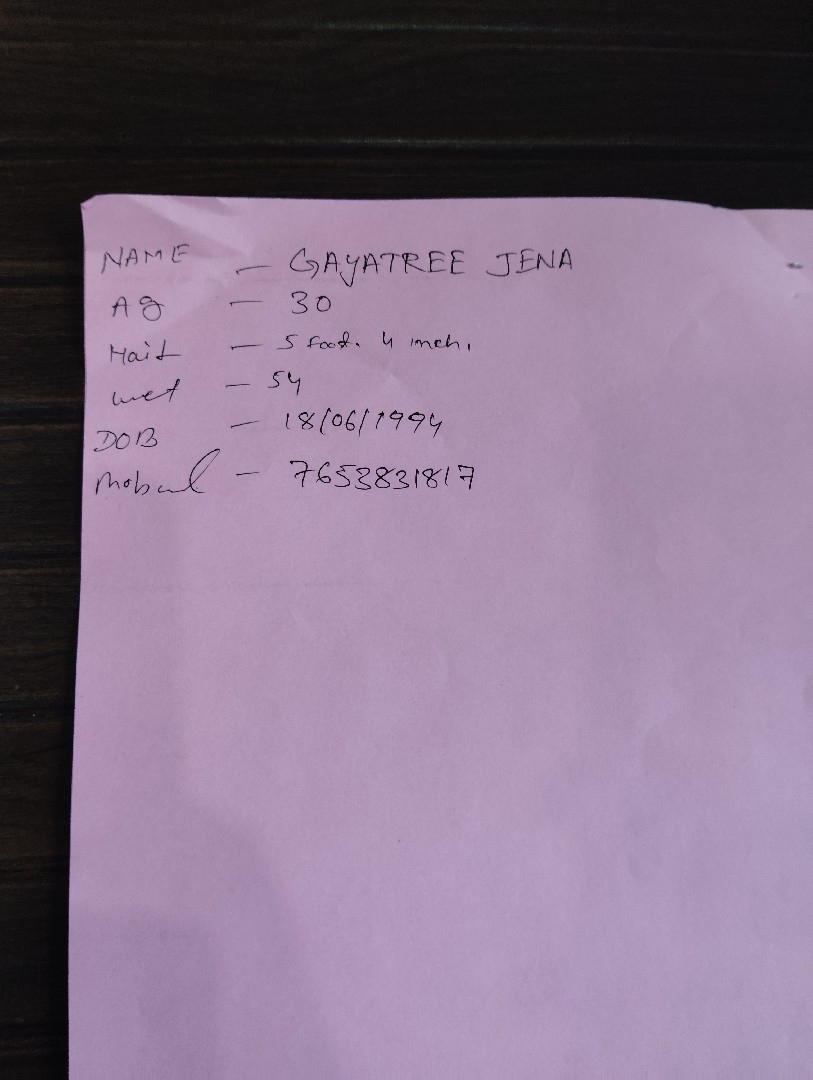 NAME - GAYATREE JENA
Ag - 30
Hait - 5 foot. 4 inch.
wet - 54
DOB - 18/06/1994
Mobaul - 7653831817